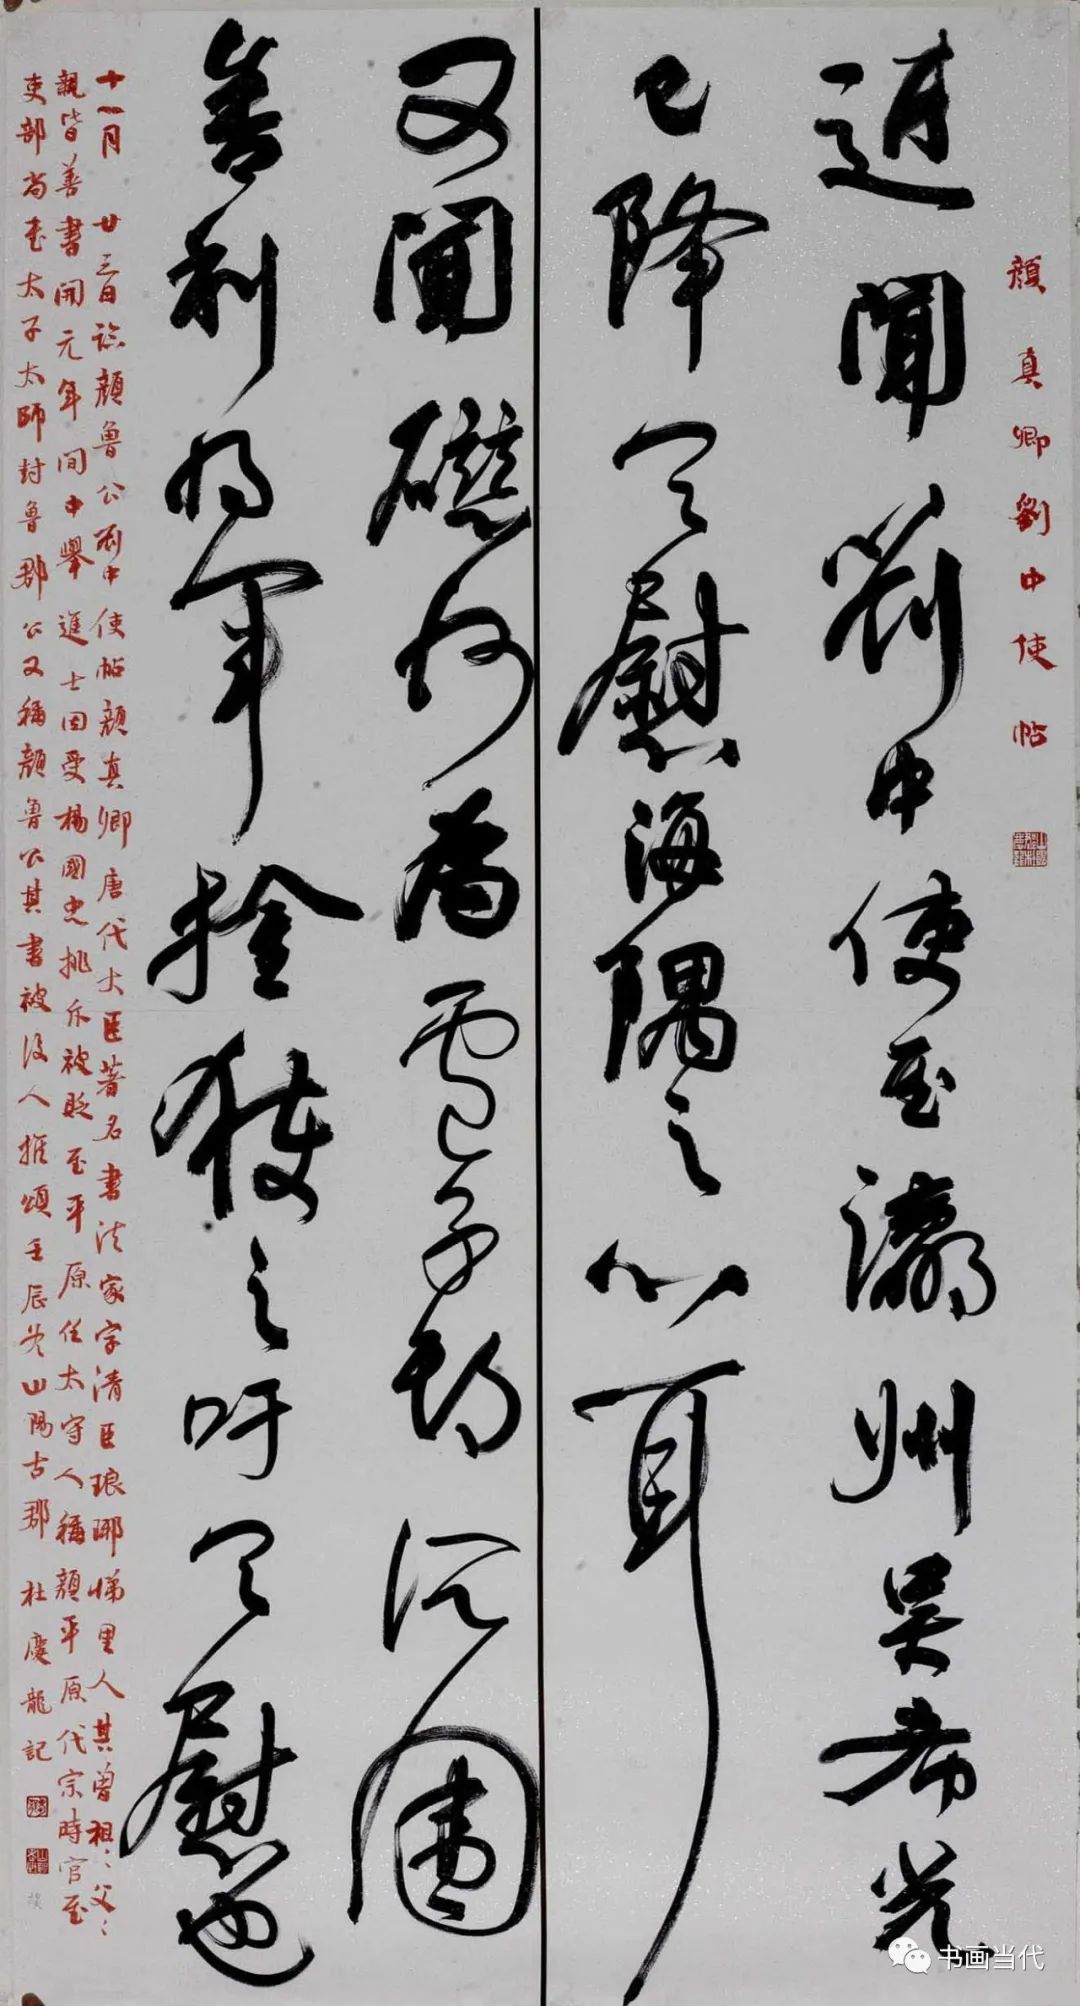 顔真卿劉中使帖
近聞劉中使至瀛州吴希光
已降足慰海隅之心耳
又聞磁州為盧子期所圍
舍利将軍擒獲之吁足慰也
十一月廿三日临顔魯公刘中使帖顔真卿唐代大臣著名書法家字清臣琅琊人其曾祖祖父父
親皆善書開元年間中舉進士因受楊國忠排斥被貶至平原任太守人稱顔平原代宗時官至
吏部尚書太子太師封魯郡公又稱顔魯公其書被後人推頌壬辰冬山陽古郡杜慶龍記
书画当代